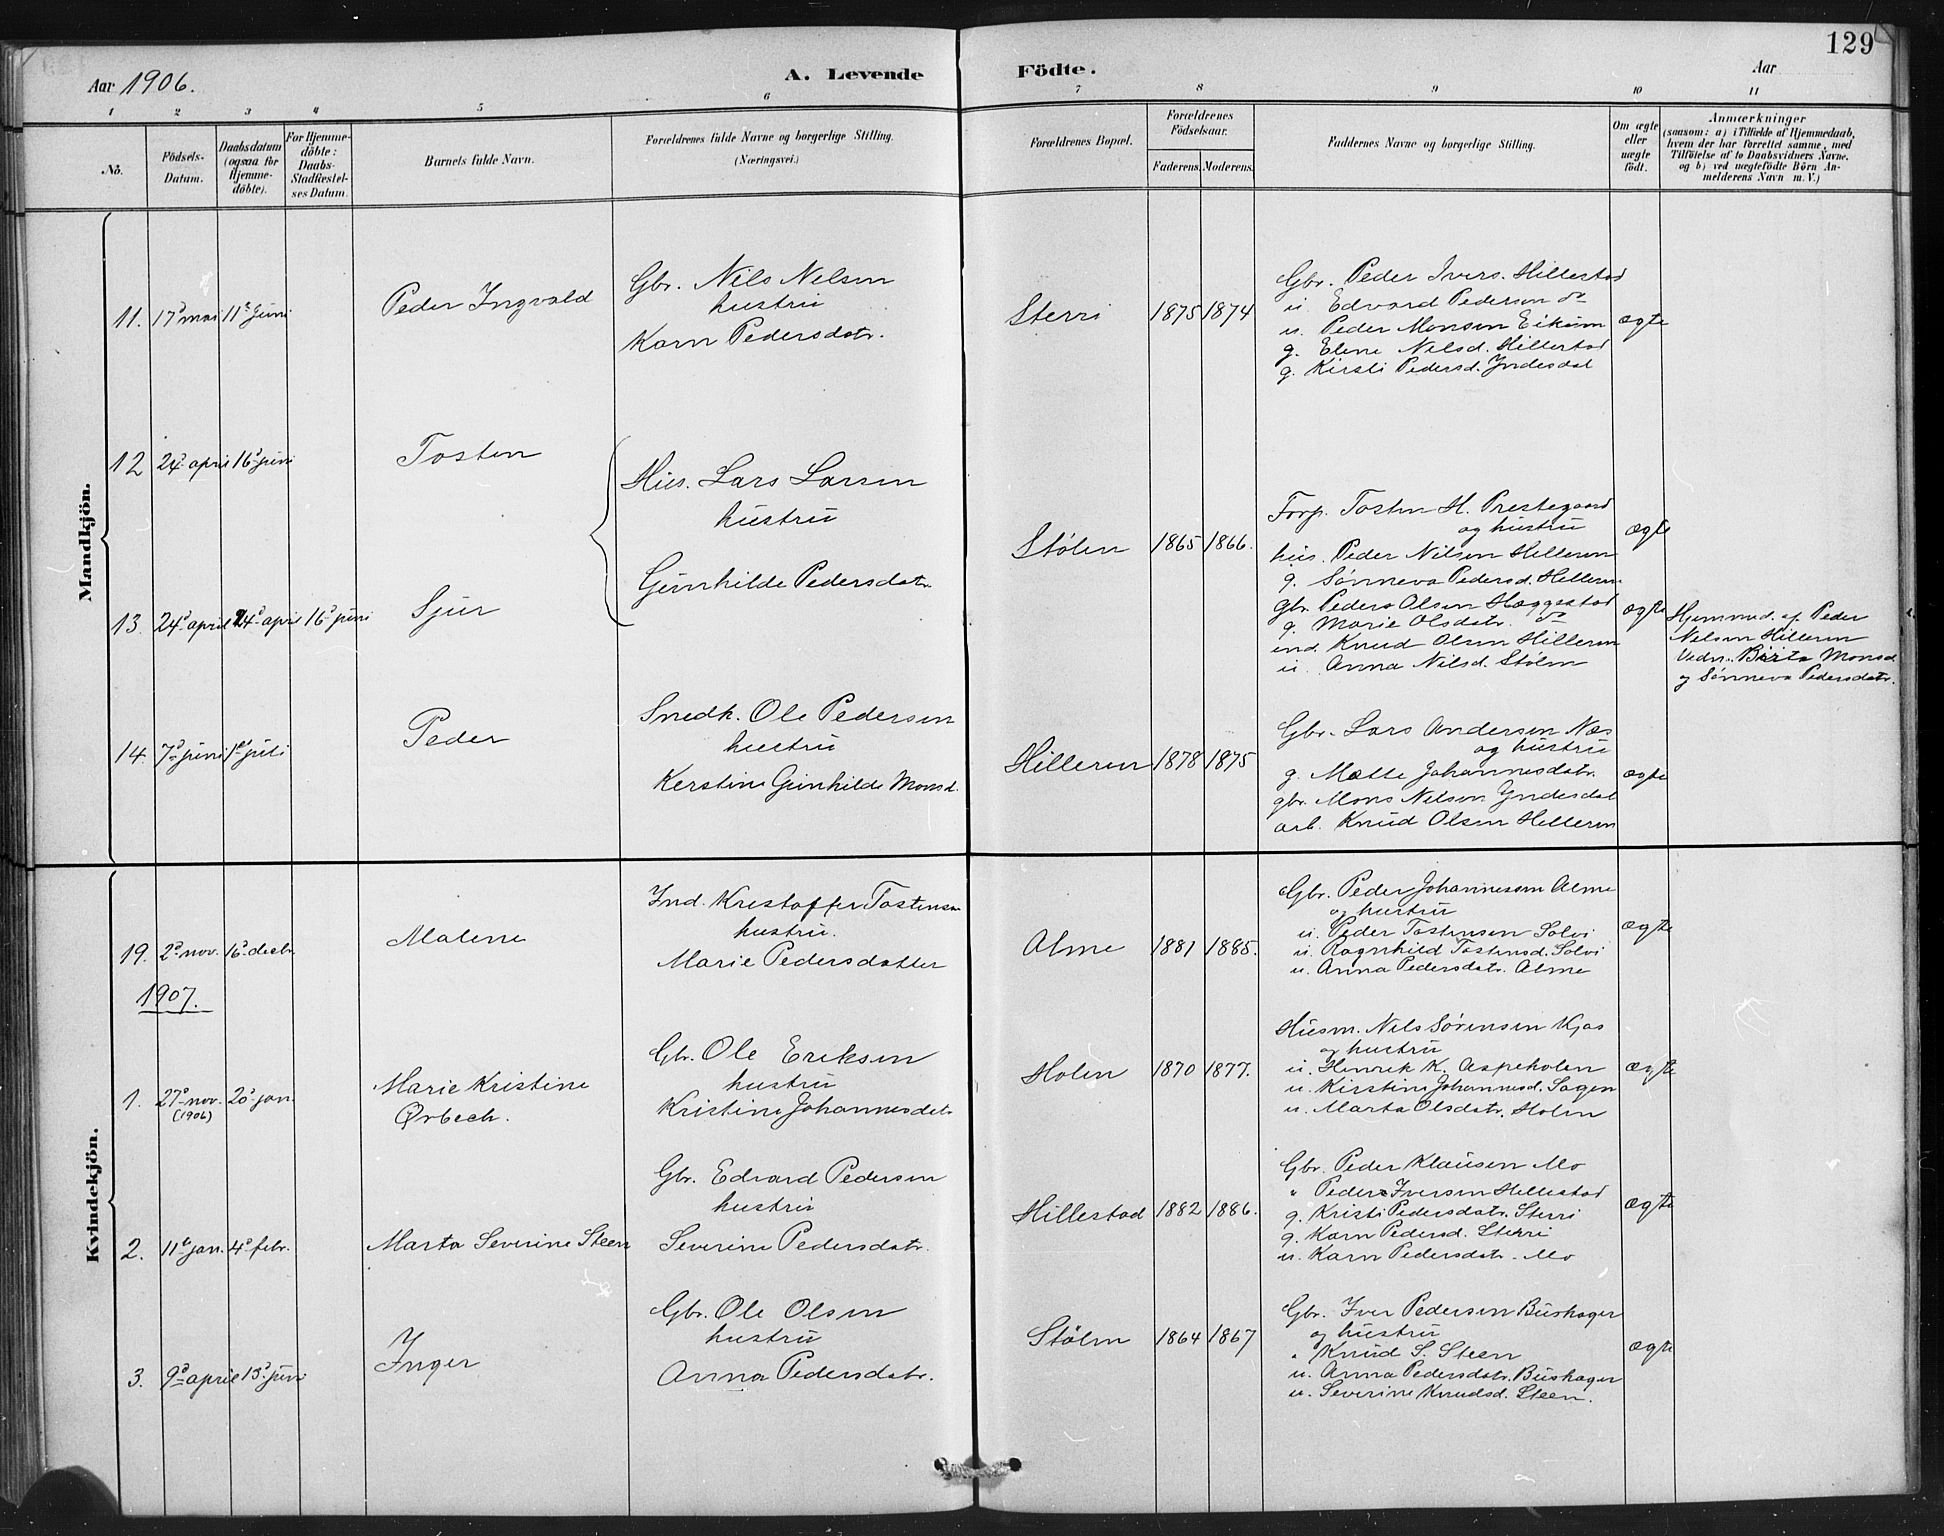 129
Aar 1906.
A. Levende Födte.
Aar
1 2 3 4 5 6 7 8 9 10 11
No.
Födsels-
Datum.
Daabsdatum
(ogsaa for
Hjemme-
döbte).
For Hjemme-
döbte:
Daabs-
Stadfestel-
ses Datum.
Barnets fulde Navn.
Forældrenes fulde Navne og borgerlige Stilling.
(Næringsvei.)
Forældrenes Bopæl.
Forældrenes
Födselsaar.
Faderens. Moderens.
Faddernes Navne og borgerlige Stilling.
Om ægte
eller
uægte
födt.
Anmærkninger
(saasom: a) i Tilfælde af Hjemmedaab,
hvem der har forrettet samme, med
Tilföielse af to Daabsvidners Navne,
og b) ved uægtefödte Börn An-
melderens Navn m. V.)
Mandkjön.
11. 17d mai 11t juni
Peder Ingvald
Gbr. Nils Nilsen
hustru
Karn Pedersdatr.
Sterri
1875 1874
Gbr. Peder Ivers. Hillestad
u. Edvard Pedersen do
u. Peder Monsen Eikum
g. Eline Nilsd. Hillestad
g. Kirsti Pedersd. Yndesdal
ægte
12 24d april 16d juni
Tosten
Hus. Lars Larsen
hustru
Gunhilde Pedersdatr.
Stølen
1865 1866.
Forp. Tosten H. Prestegaard
og hustru
hus. Peder Nilsen Hilleren
g. Sønneva Pedersd. Hilleren
gbr. Peder Olsen Hæggestad
g. Marie Olsdatr. do
ind. Knud Olsen Hilleren
u. Anna Nilsd. Stølen
ægte
13. 24d april 24d april 16d juni
Sjur
ægte
Hjemmed. af Peder
Nilsen Hilleren
Vidn. Birta Monsd.
og Sønneva Pedersdatr.
14 7d juni 1d juli
Peder
Snedk. Ole Pedersen
hustru
Kerstine Gunhilde Monsd.
Hilleren
1878 1875
Gbr. Lars Andersen Næs
og hustru
g. Mætte Johannesdatr.
gbr. Mons Nilsen Yndesdal
arb. Knud Olsen Hilleren
ægte
Kvindekjön.
19. 2d nov. 16d decbr.
Malene
Ind. Kristoffer Tostensen
hustru.
Marie Pedersdatter
Alme
1881 1885.
Gbr. Peder Johannesen Alme
og hustru
u. Peder Tostensen Solvi
u. Ragnhild Tostensd. Solvi
u. Anna Pedersdatr. Alme
ægte
1907.
1. 27d nov. 20d jan.
(1906)
Marie Kristine
Ørbech.
Gbr. Ole Eriksen
hustru
Kristine Johannesdatr
Holen
1870 1877.
Husm. Nils Sørensen Kjos
og hustru
u. Henrik K. Aspeholen
u. Kirstine Johannesd. Sagen
u. Marta Olsdatr. Holen
ægte
2. 11d jan. 4d febr.
Marta Severine Steen
Gbr. Edvard Pedersen
hustru
Severine Pedersdatr.
Hillestad
1882 1886.
Gbr. Peder Klausen Mo
" Peder Iversen Hillestad
g. Kristi Pedersdatr. Sterri
g. Karn Pedersd. Sterri
u. Karn Pedersdatr. Mo
ægte
3. 9d april juni
Inger
Gbr. Ole Olsen
hustru
Anna Pedersdatr.
Stølen
1864 1867
Gbr. Iver Pedersen Búshager
og hustru
" Knud S. Steen
u. Anna Pedersdatr. Búshager
u. Severine Knudsd. Steen.
ægte